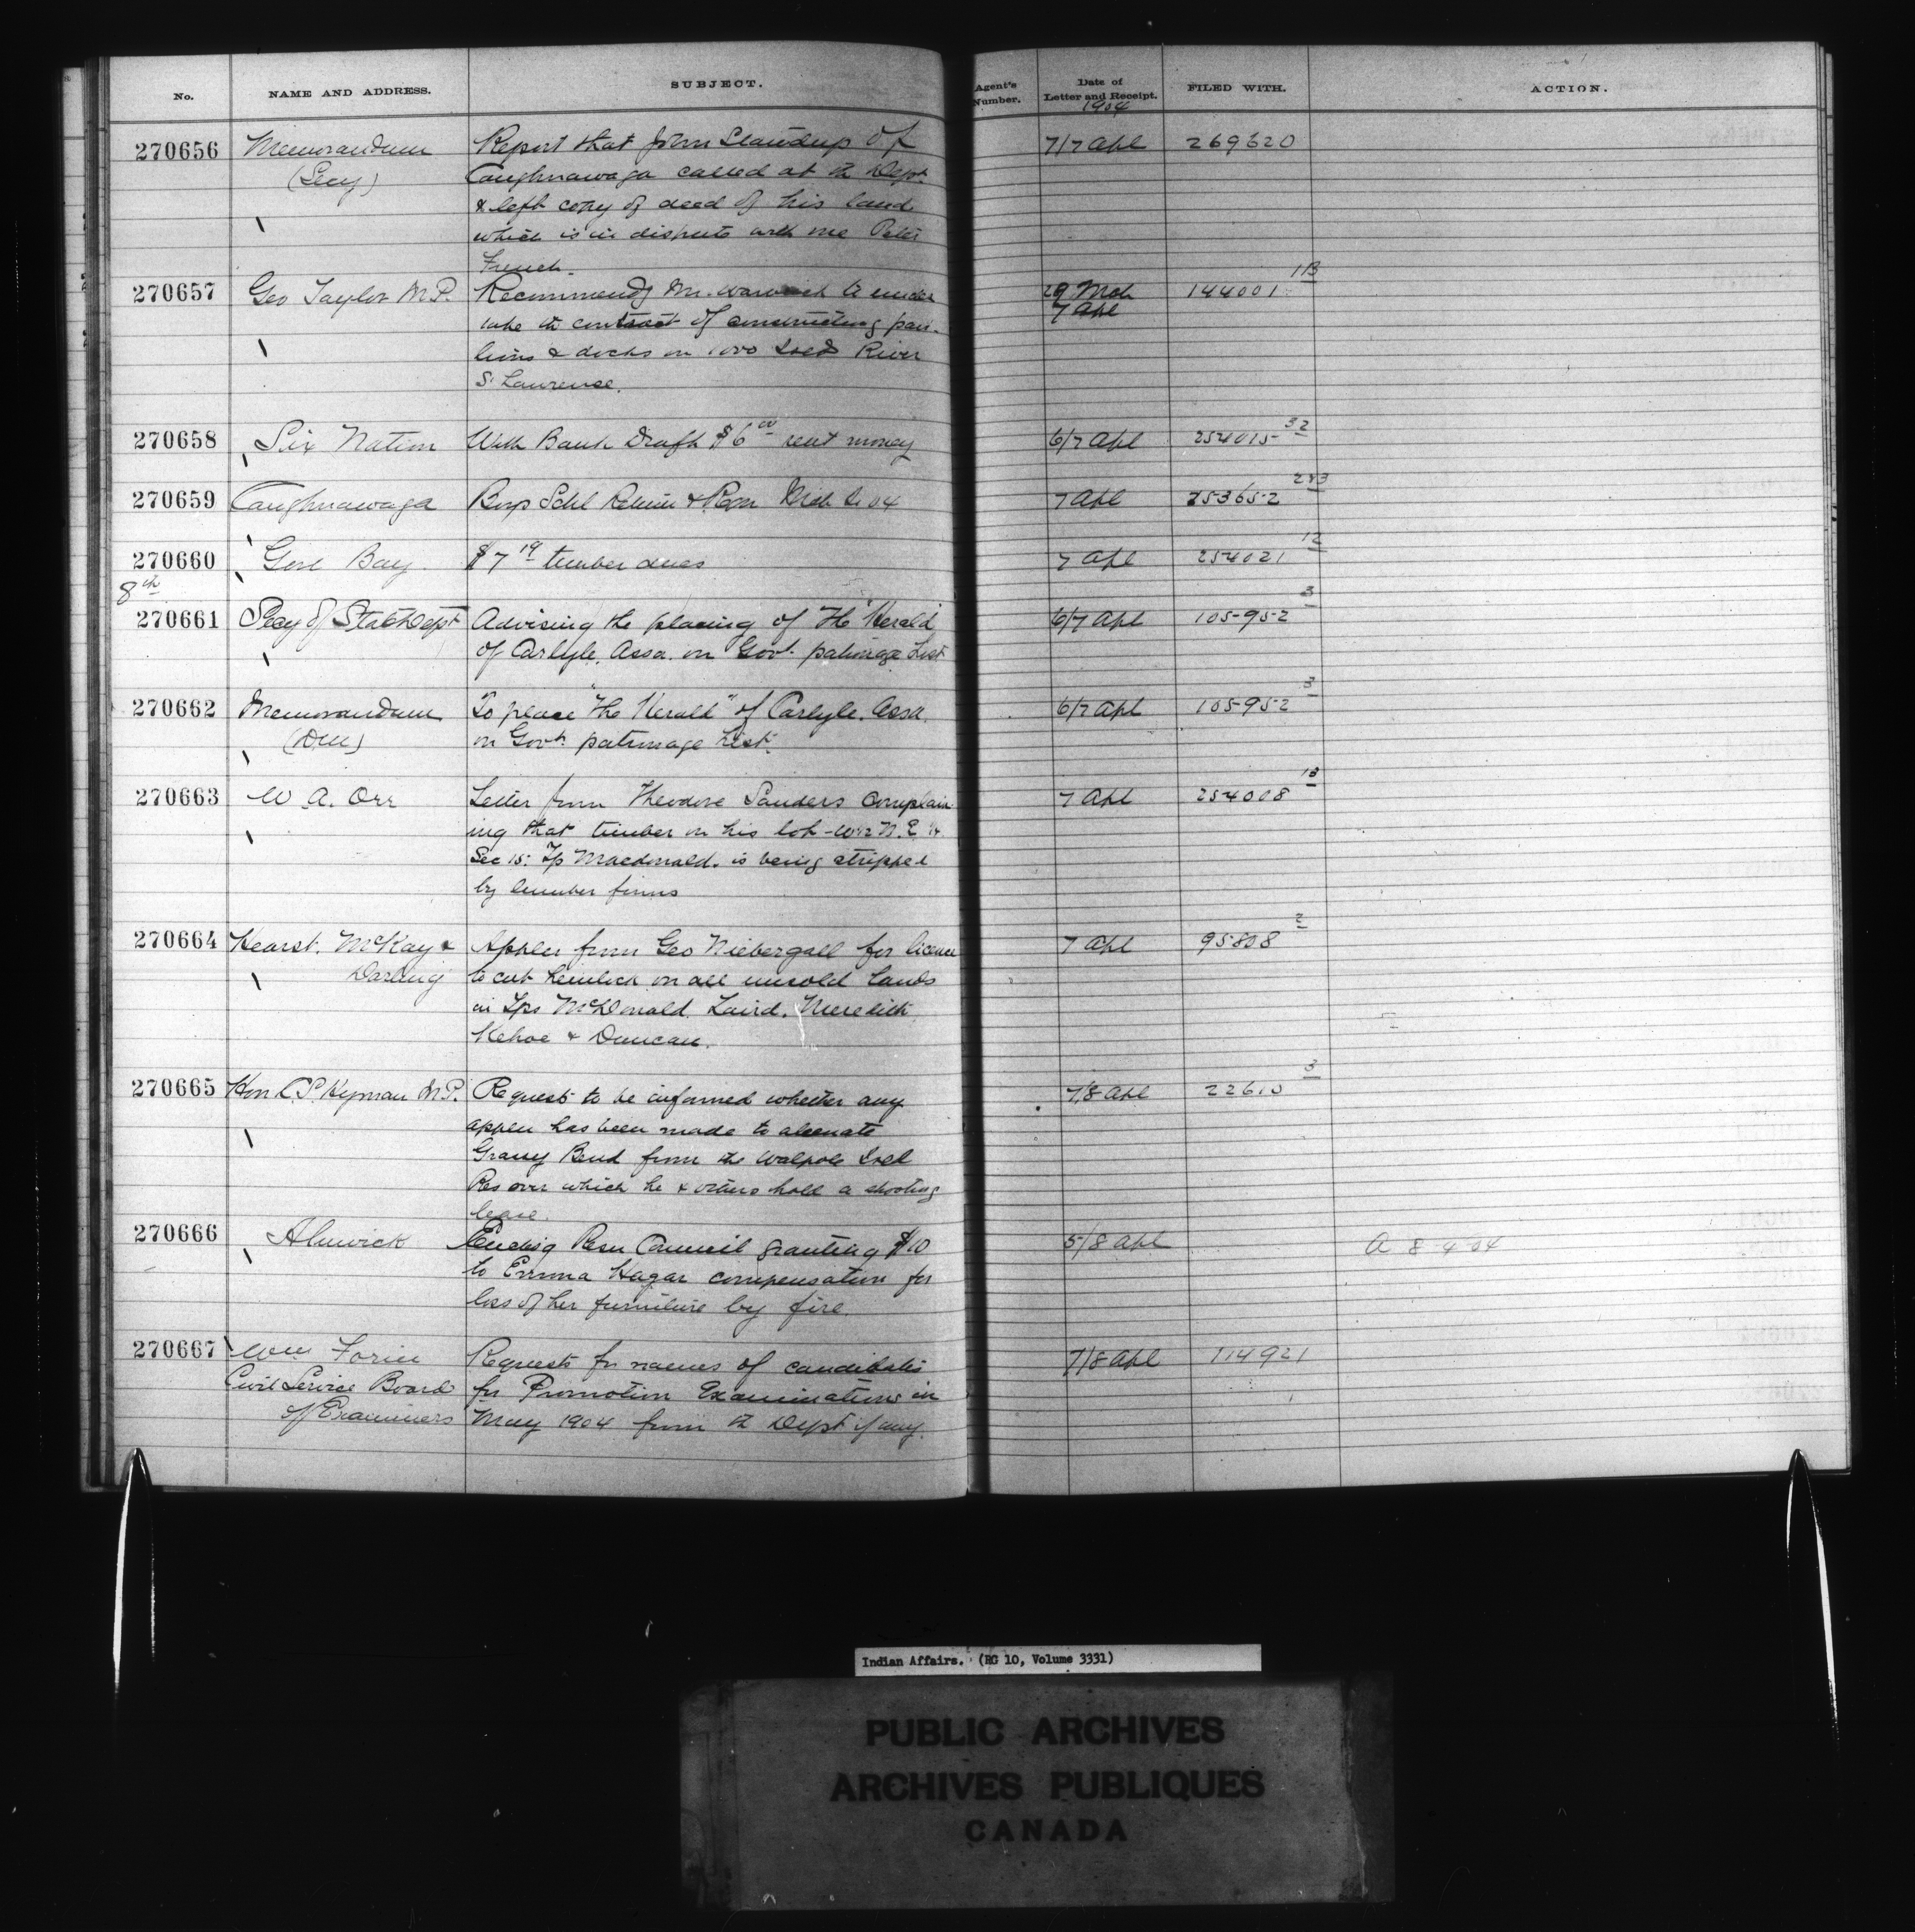 No. NAME AND ADDRESS. SUBJECT. Agent's Number. Date of Letter and Receipt. FILED WITH. ACTION.
1904
270656 Memorandum Report that John Standup of 7/7 Apl 269620
(Secy) Caughnawaga called at the Dept.
& left copy of deed of his land
which is in dispute with one Peter
French.
270657 Geo Taylor M.P. Recommends Mr. to under 29 Mch 144001 1B
take the contract of constructing pavi- 7 Apl
lions & docks on 1000 Isld River
St Lawrense.
270658 Six Nation With Bank Draft $6 00 rent money 6/7 Apl 254015 32
270659 Caughnawaga Boys Schl Return & Mch Qr 04 7 Apl 253652 283
270660 Gore Bay $7 19 timber dues 7 Apl 254021 12
8th
270661 Secy of State Dept Advising the placing of "The Herald" 6/7 Apl 105952 3
of Carlyle, Assa. on Govt. patronage List
270662 Memorandum To place "The Herald" of Carlyle. Assa. 6/7 Apl 105952 3
on Govt. patronage List.
270663 W A. Orr Letter from Theodore Sanders Complain- 7 Apl 254008 13
ing that timber on his lot - W1/2 N.E 1/4
Sec 15: Tp Macdonald. is being stripped
by lumber firms
270664 Hearst. McKay & Applcn from Geo Niebergall for licence 7 Apl 95808 2
Darling to cut hemlock on all unsold lands
in Tps McDonald, Laird, Meredith
Kehoe & Duncan.
270665 Hon C.S. Hyman M.P. Request to be informed whether any 7/8 Apl 22610 3
applcn has been made to alienate
Grassy Bend from the Walpole Isld
Res over which he & others hold a shooting
lease.
270666 Alnwick Encloig Resn Council granting $10 5/8 Apl A 8 4 04
to Emma Hagar compensation for
loss of her furniture by fire.
270667 Wm Forin Requests for names of candidates 7/8 Apl 114921
Civil Service Board for Promotion Examinations in
of Examiners May 1904 from the Dept if any.
Indian Affairs. (RG 10, Volume 3331)
PUBLIC ARCHIVES
ARCHIVES PUBLIQUES
CANADA